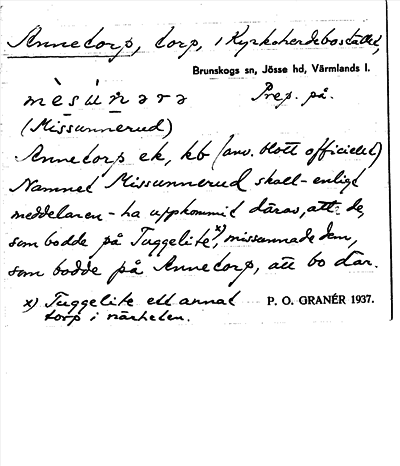 Annetorp, torp, i Kyrkoherdebostället,
Brunskogs sn, Jösse hd, Värmlands l.
mèsúnərə Prep. på.
(Missunnerud)
Annetorp ek, kb (anv. blott officiellt)
Namnet Missunnerud skall - enligt
meddelaren - ha uppkommit därav, att de,
som bodde på Tuggelite x), missunnade dem,
som bodde på Annetorp, att bo där.
x) Tuggelite ett annat
torp i närheten.
P. O. GRANÉR 1937.